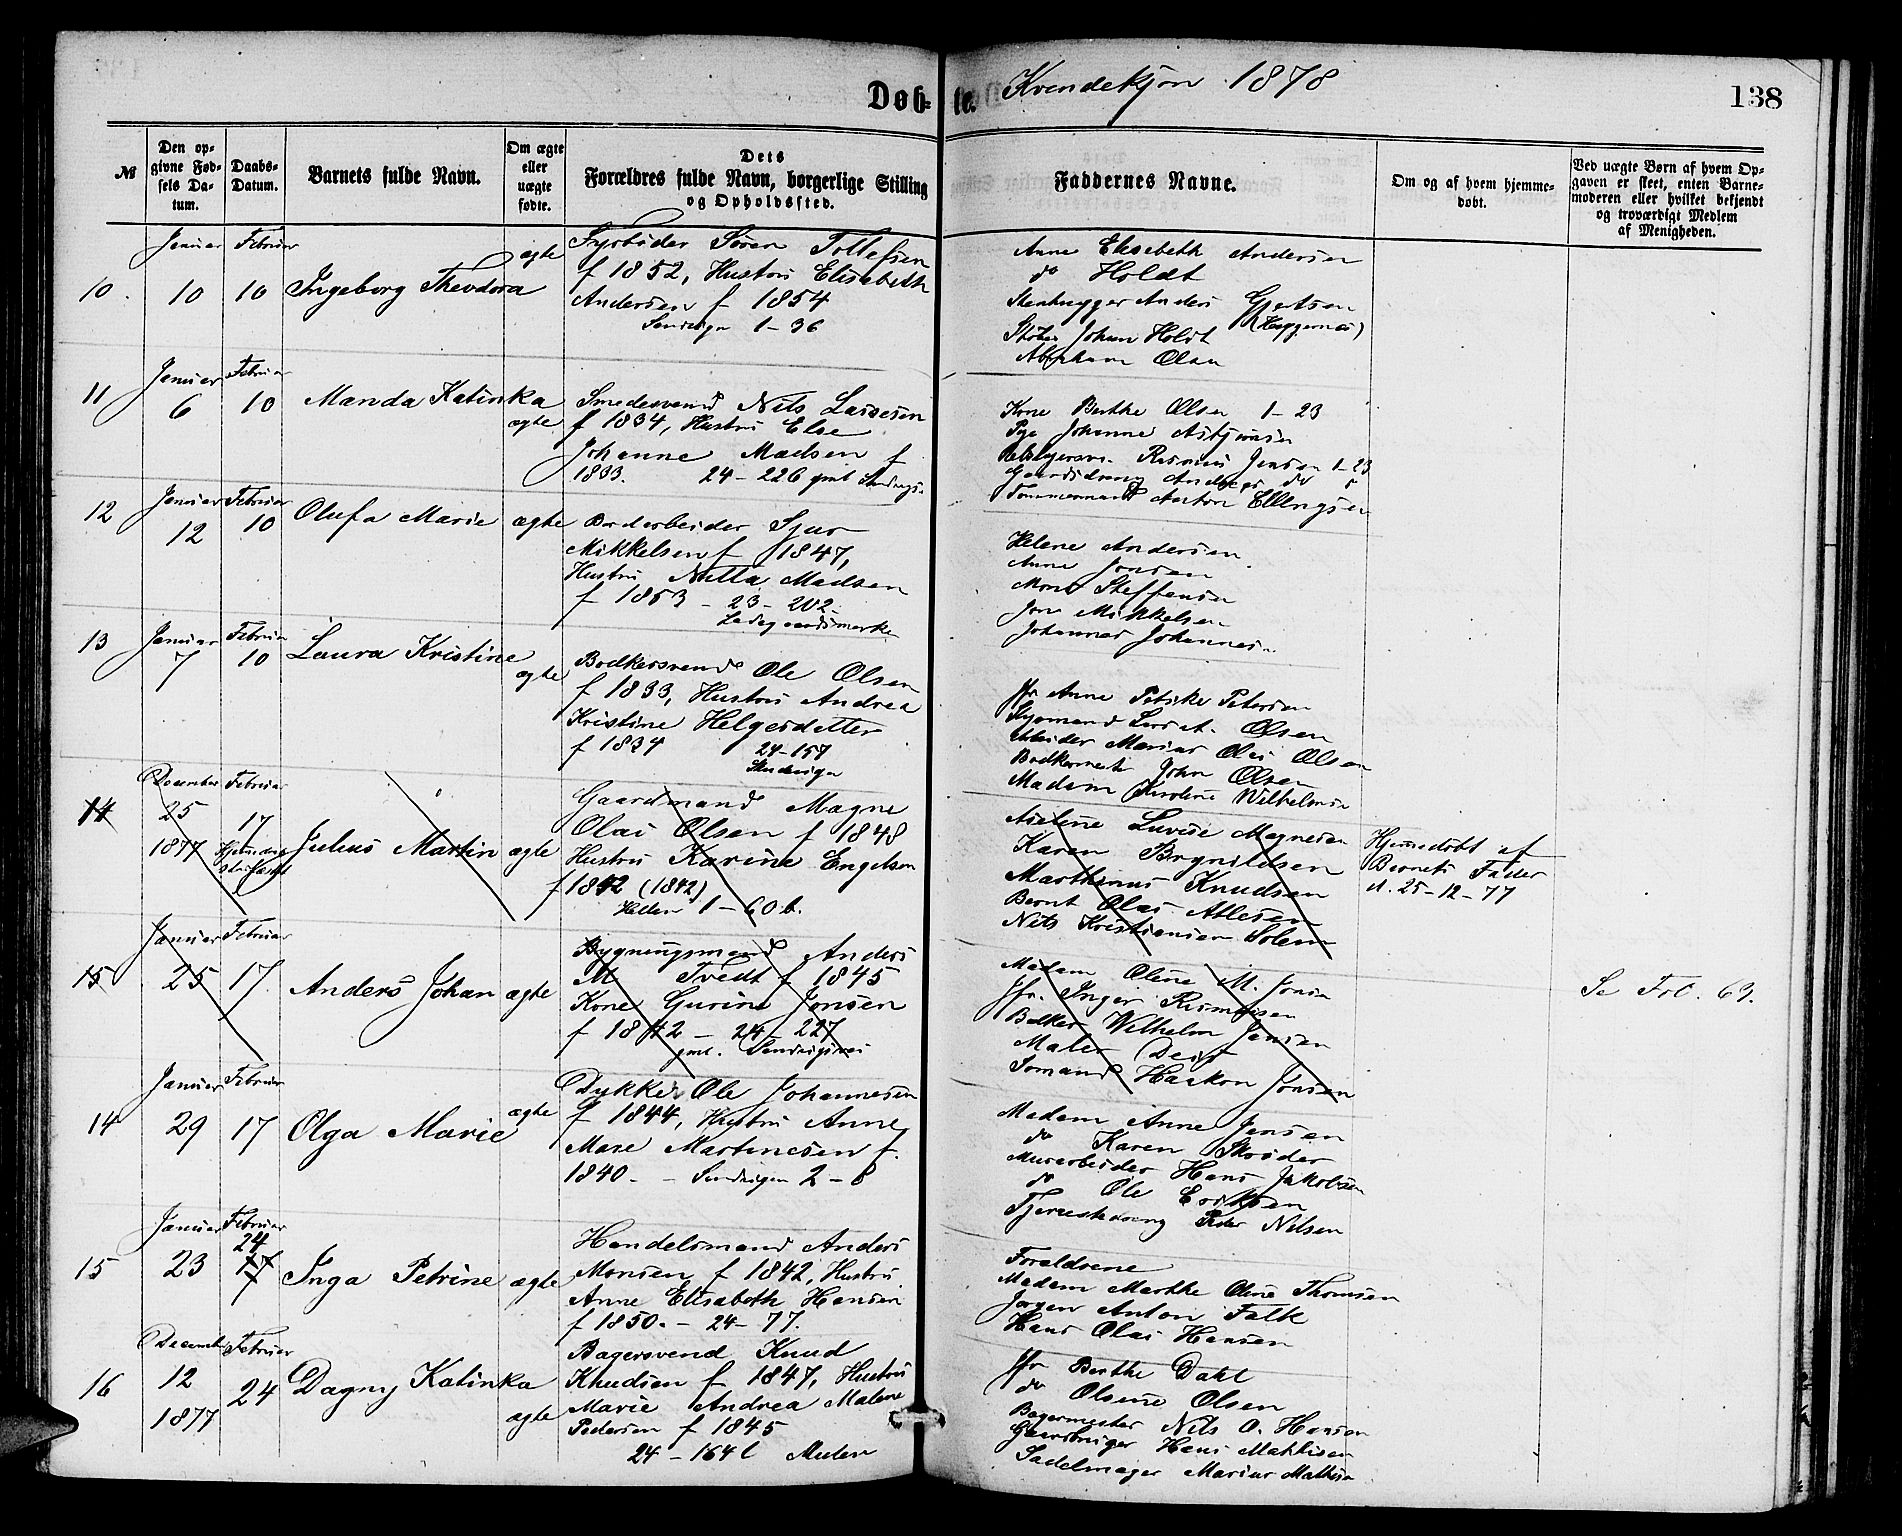 Døb-
te.
Kvindekjøn 1878
138
№
Den op-
givne Fød-
sels Da-
tum.
Daabs-
Datum.
Barnets fulde Navn.
Om ægte
eller
uægte
fødte.
Dets
Forældres fulde Navn, borgerlige Stilling
og Opholdssted.
Faddernes Navne.
Om og af hvem hjemme-
døbt.
Ved uægte Børn af hvem Op-
gaven er skeet, enten Barne-
moderen eller hvilket bekjendt
og troværdigt Medlem
af Menigheden.
10.
Januar
10
Februar
10
Ingeborg Theodora
ægte
Fyrbøder Søren Tollefsen
f 1852, Hustru Elisabeth
Andersen f 1854
Sandvigen 1-36
Anne Elisabeth Andersen
do Holdt
Stenhugger Anders Gjertsen
Johan Holdt
Abraham Olsen
11
Januar
6
Februar
10
Manda Katinka
ægte
Smedesvend Nils Lassesen
f 1834, Hustru Else
Johanne Madsen f
1833. 24-226
Kone Berthe Olsen 1-23
Pige Johanne
Rasmus Jensen 1-23
Gaardsdreng Andreas do
Tømmermand Anton Ellingsen
12
Januar
12
Februar
10
Olufa Marie
ægte
Bodarbeider Sjur
Mikkelsen f 1847,
Hustru Nilla Madsen
f 1853 - 23-202
Ladegaardsmarken
Helene Andersen
Anne Jonsen
Mons Steffensen
Jon Mikkelsen
Johannes Johannesen
13
Januar
7
Februar
10
Laura Kristine
ægte
Bødkersvend Ole Olsen
f 1833, Hustru Andrea
Kristine Helgesdatter
f 1834 24-157
Sandvigen
Jfr Anne Petrike Petersen
Olsen
Arbeider Marius Olai Olsen
John Olsen
Madam Karoline Wilhelmsen
14
December
25
1877
Februar
17
Julius Martin
ægte
Gaardmand Magne
Olai Olsen f 1848
Hustru Karine Engelsen
f 1842 (1842)
Hellen 1-60 b.
Luvise Magnesen
Karen Brynildsen
Marthinus Knudsen
Bernt Olai Atlesen
Nils Kristiansen Solem
Hjemmedøbt af
Barnets Fader
d. 25-12-77
15
Januar
25
Februar
17.
Anders Johan
ægte
Bygningsmand Anders
M Tvedt f 1845
Kone Gurine Jonsen
f 1842 - 24-227
gml. Sandvigsvei
Madam Oline M. Jonsen
Jfr. Inger Rasmussen
Bødker Wilhelm Jensen
Maler
Sømand Haakon Jonsen
Se Fol. 63.
14
Januar
29
Februar
17
Olga Marie
ægte
Dykker Ole Johannesen
f 1844, Hustru Anne
Mare Martinesen f.
1840. - Sandvigen 2-8
Madam Anne Jensen
do Karen Skrøder
Murarbeider Hans Jakobsen
do Ole Eriksen
Tjenestedreng Peder Nilsen
15
Januar
23
Februar
24
17
Inga Petrine
ægte
Handelsmand Anders
Monsen f 1842, Hustru
Anne Elisabeth Hansen
f 1850. - 24-77.
Forældrene
Madam Marthe Oline Thomsen
Jørgen Anton Falk
Hans Olai Hansen
16
December
12
1877
Februar
24
Dagny Katinka
ægte
Bagersvend Knud
Knudsen f 1847, Hustru
Marie Andrea Malene
Pedersen f 1845
24-164 l Mulen
Jfr Berthe Dahl
do Olsine Olsen
Bagermester Nils O. Hansen
Hans Mathisen
Sadelmager Marius Mathisen